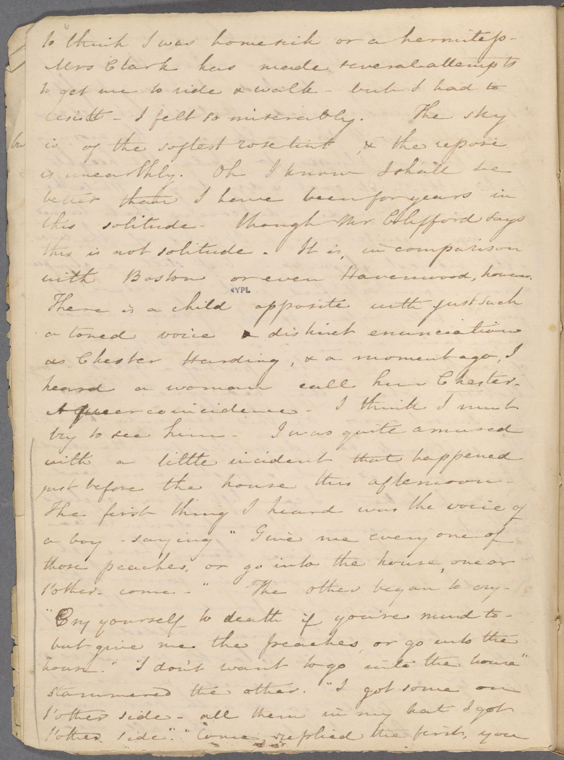 to think I was homesick or a hermitess-
Mrs Clark has made several attempts
to get me to ride & walk - but I had to
resist - I felt so miserably. The sky
is of the softest rose tint, & the repose
is unearthly. Oh I know I shall be
better than I have been for years in
this solitude - though Mr Clifford says
this is not solitude. It is, in comparison
with Boston or even Havenwood, however.
NYPL
There is a child opposite with just such
a toned voice & distinct enunciation
as Chester Harding, & a moment ago, I
heard a woman call him Chester-
A queer coincidence - I think I must
try to see him - I was quite amused
with a little incident that happened
just before the house this afternoon -
The first thing I heard was the voice of
a boy - saying "Give me every one of
those peaches, or go into the house, one or
t'other - come -" The other began to cry-
"Cry yourself to death if you're mind to -
but give me the peaches or go into the
house." "I don't want to go into the house"
stammered the other. "I got some on
t'other side - all them in my hat I got
t'other side". "Come, replied the first, you